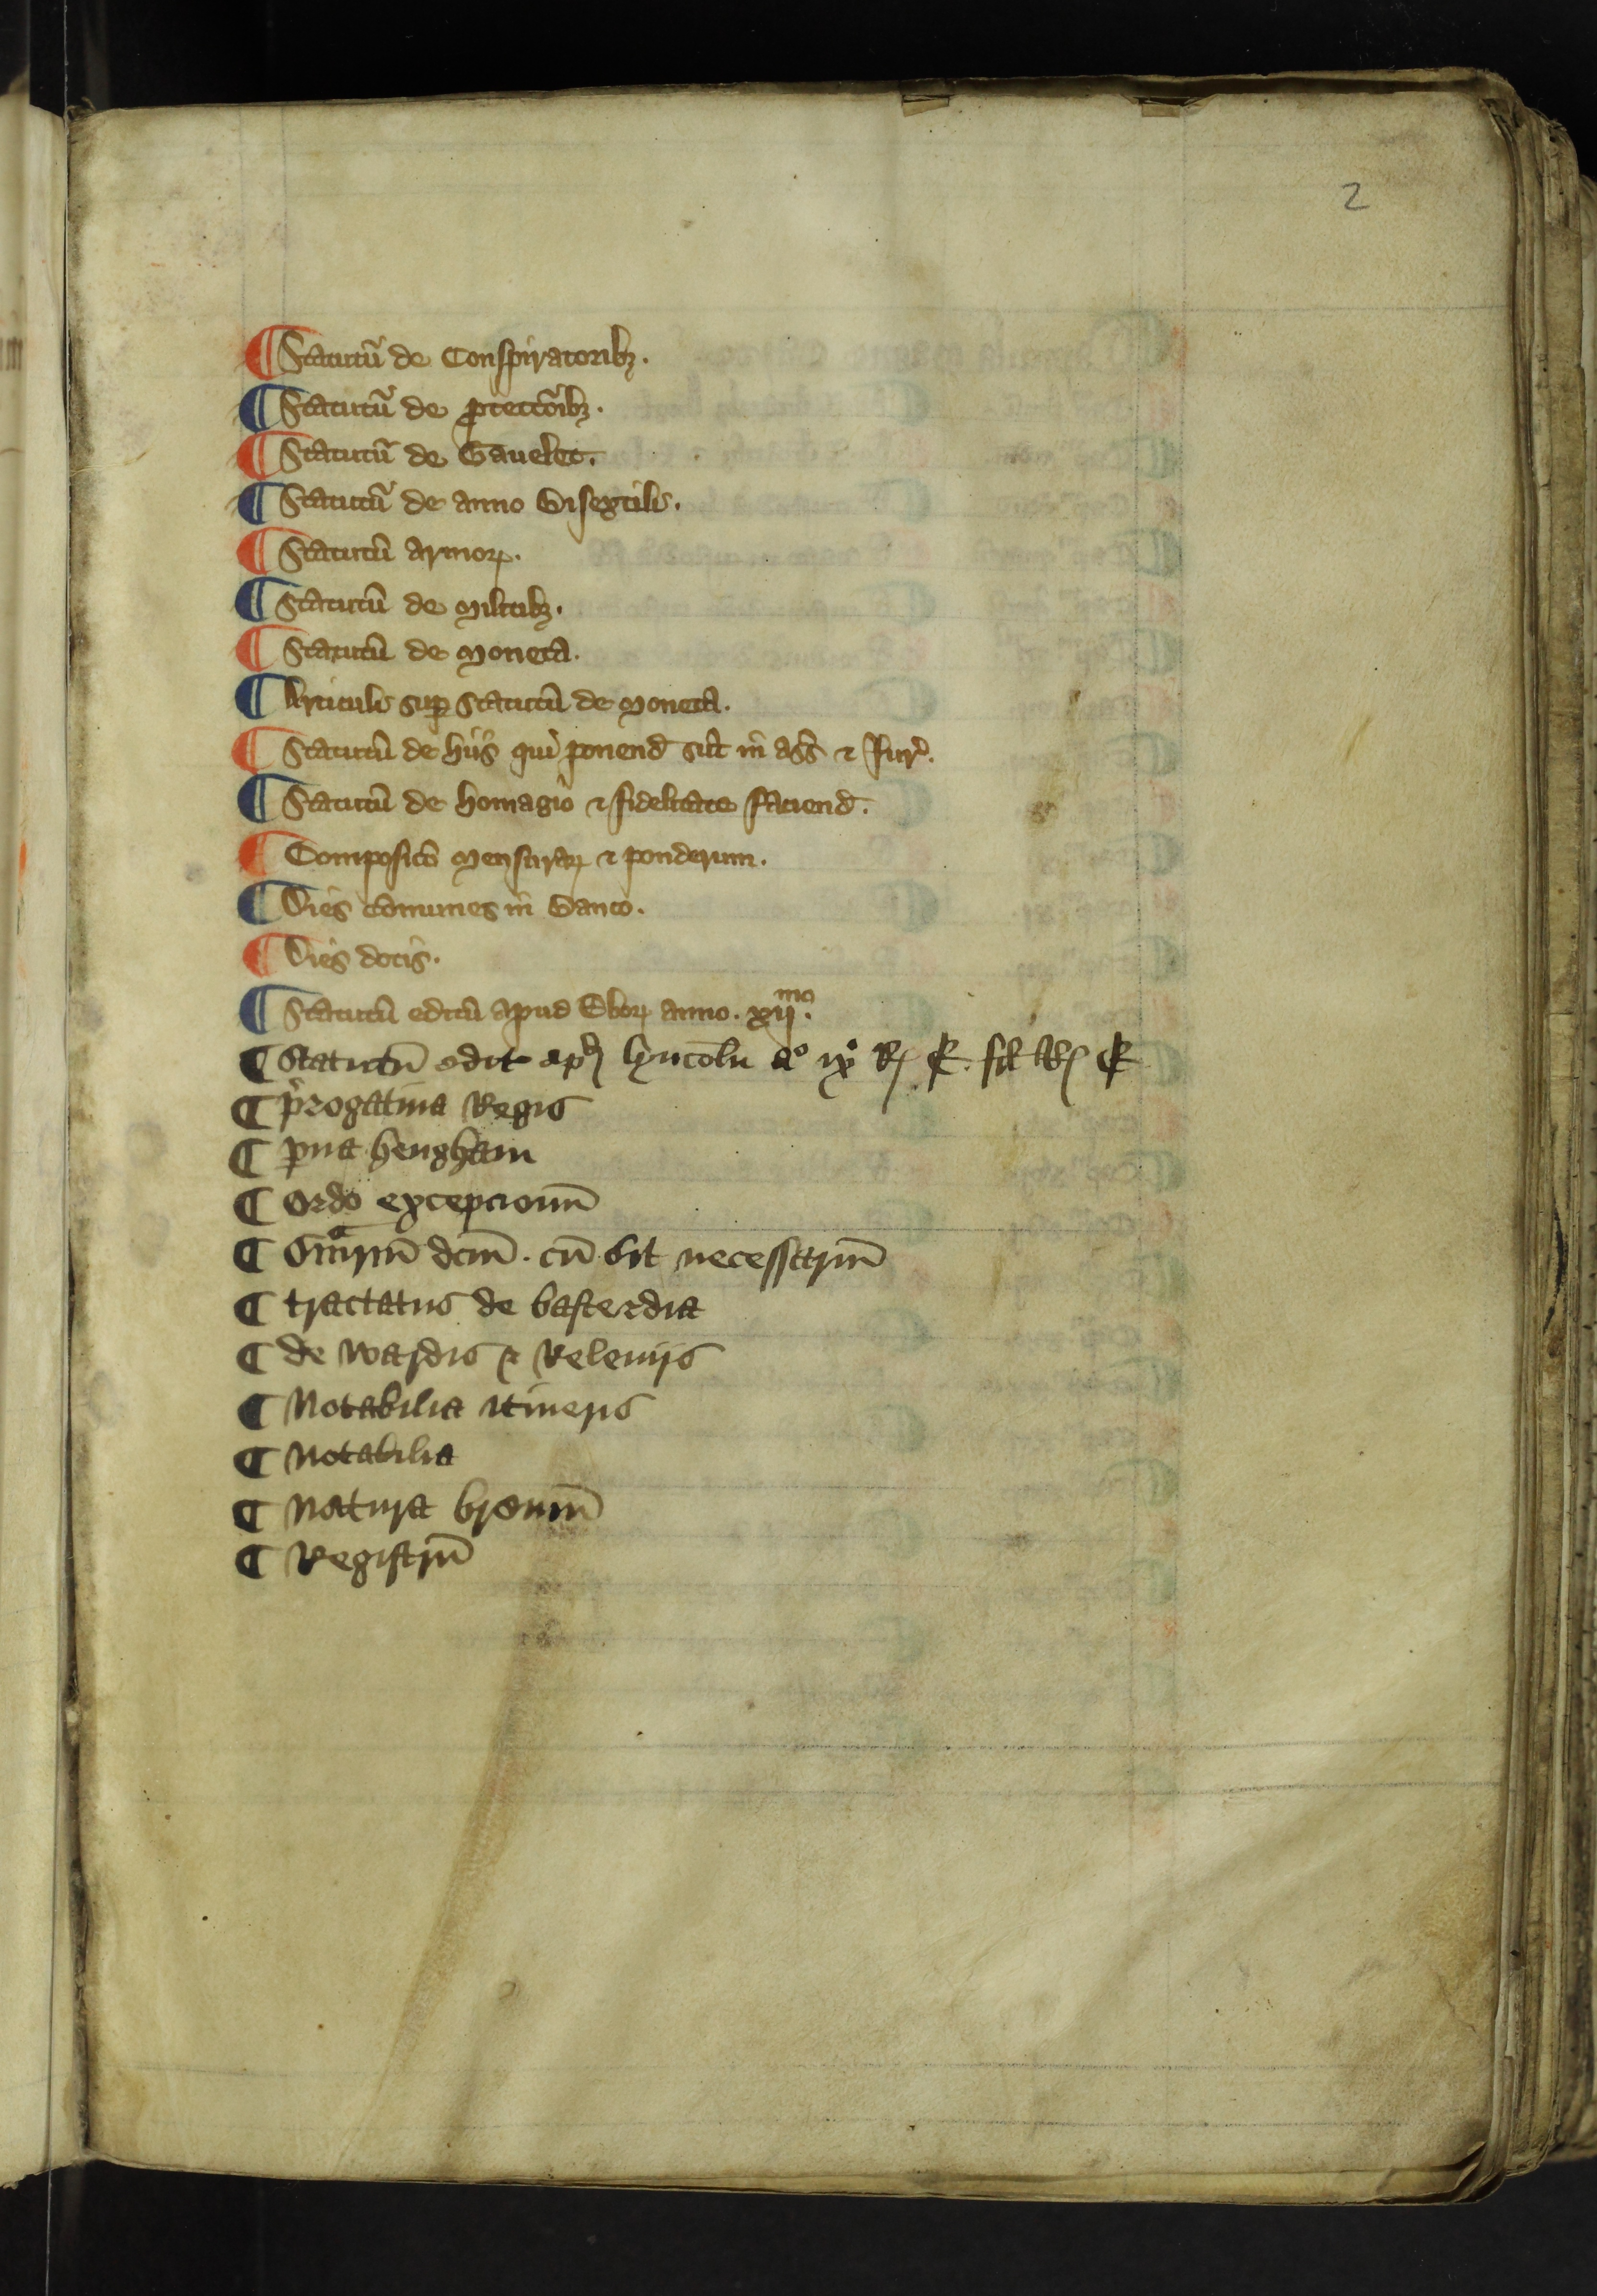 2
¶ Statutū de Conspiratoribꝫ.
¶ Statutū de ꝓtectōibꝫ.
¶ Statutū de Gauelet.
¶ Statutū de anno Bisextili.
¶ Statutū armoꝝ.
¶ Statutū de Militibꝫ.
¶ Statutū de Moneta.
¶ Articuli suꝑ statutū de Moneta.
¶ Statutū de hiis qui ponend sūt in ass̄ ⁊ Jur̄.
¶ Statutū de homagio ⁊ fidelitate faciend.
¶ Composicō Mensuraꝝ ⁊ ponderum.
¶ Dies cōmunes in Banco.
¶ Dies dotis.
¶ Statutū editū apud Eboꝝ anno. xijᵐᵒ.
¶ Statutū edit apd lyncoln aº ixº Rꝭ E. fil Rꝭ E
¶ p̓rogatiua Regis
¶ ꝑua hengham
¶ Ordo excepcionū
¶ Sūma dcm̄. cū sit necessariū
¶ tractatus de basterdia
¶ de wardis ⁊ Releuijs
¶ Notabilia itineris
¶ Notabilia
¶ Natura breuiū
¶ Registrū